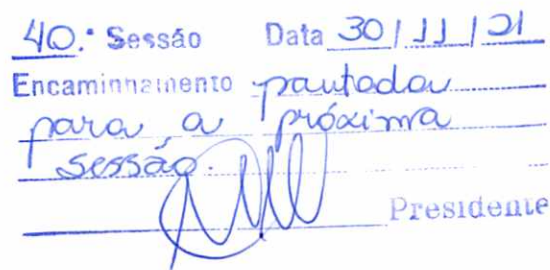 40.ª Sessão Data 30/11/21
Encaminhamento pautada
para a próxima
sessão.
Presidente